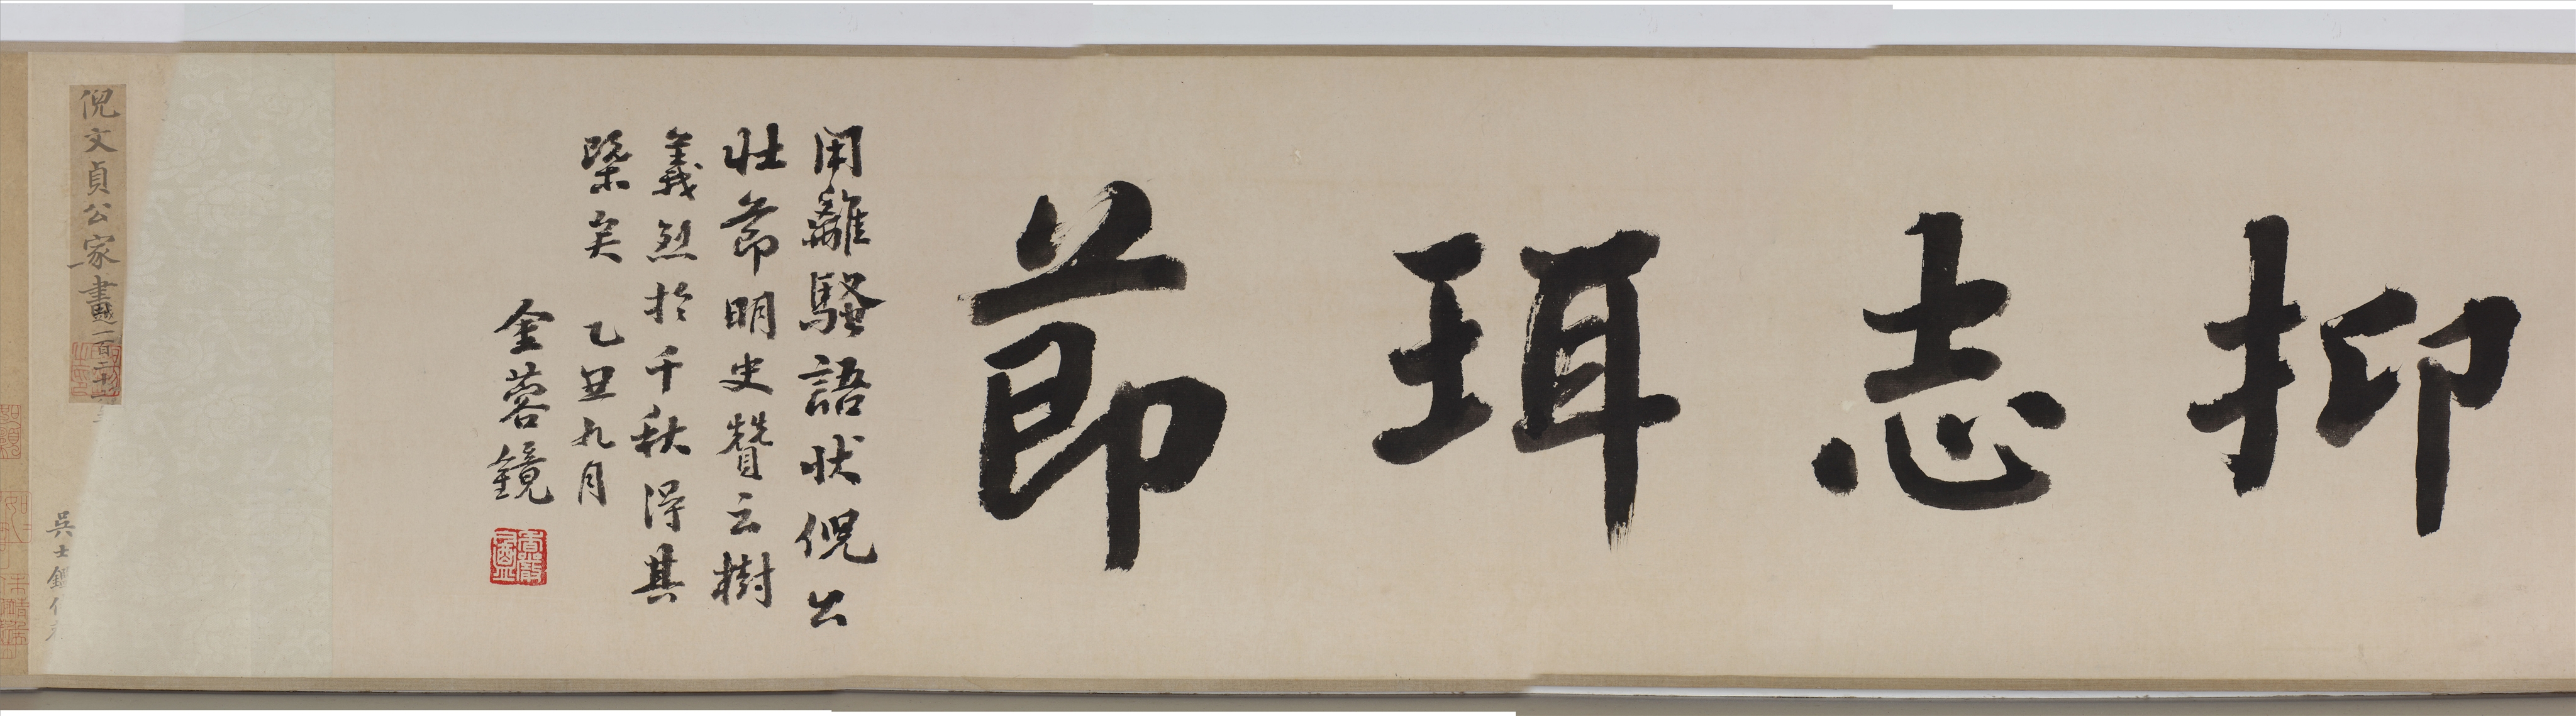 抑志珥節
用離騷語狀倪公
壯節明史贊云樹
義烈於千秋得其
槩矣 乙丑九月
金蓉鏡
香嚴
倪文貞公家書一百二十
吳士鑑